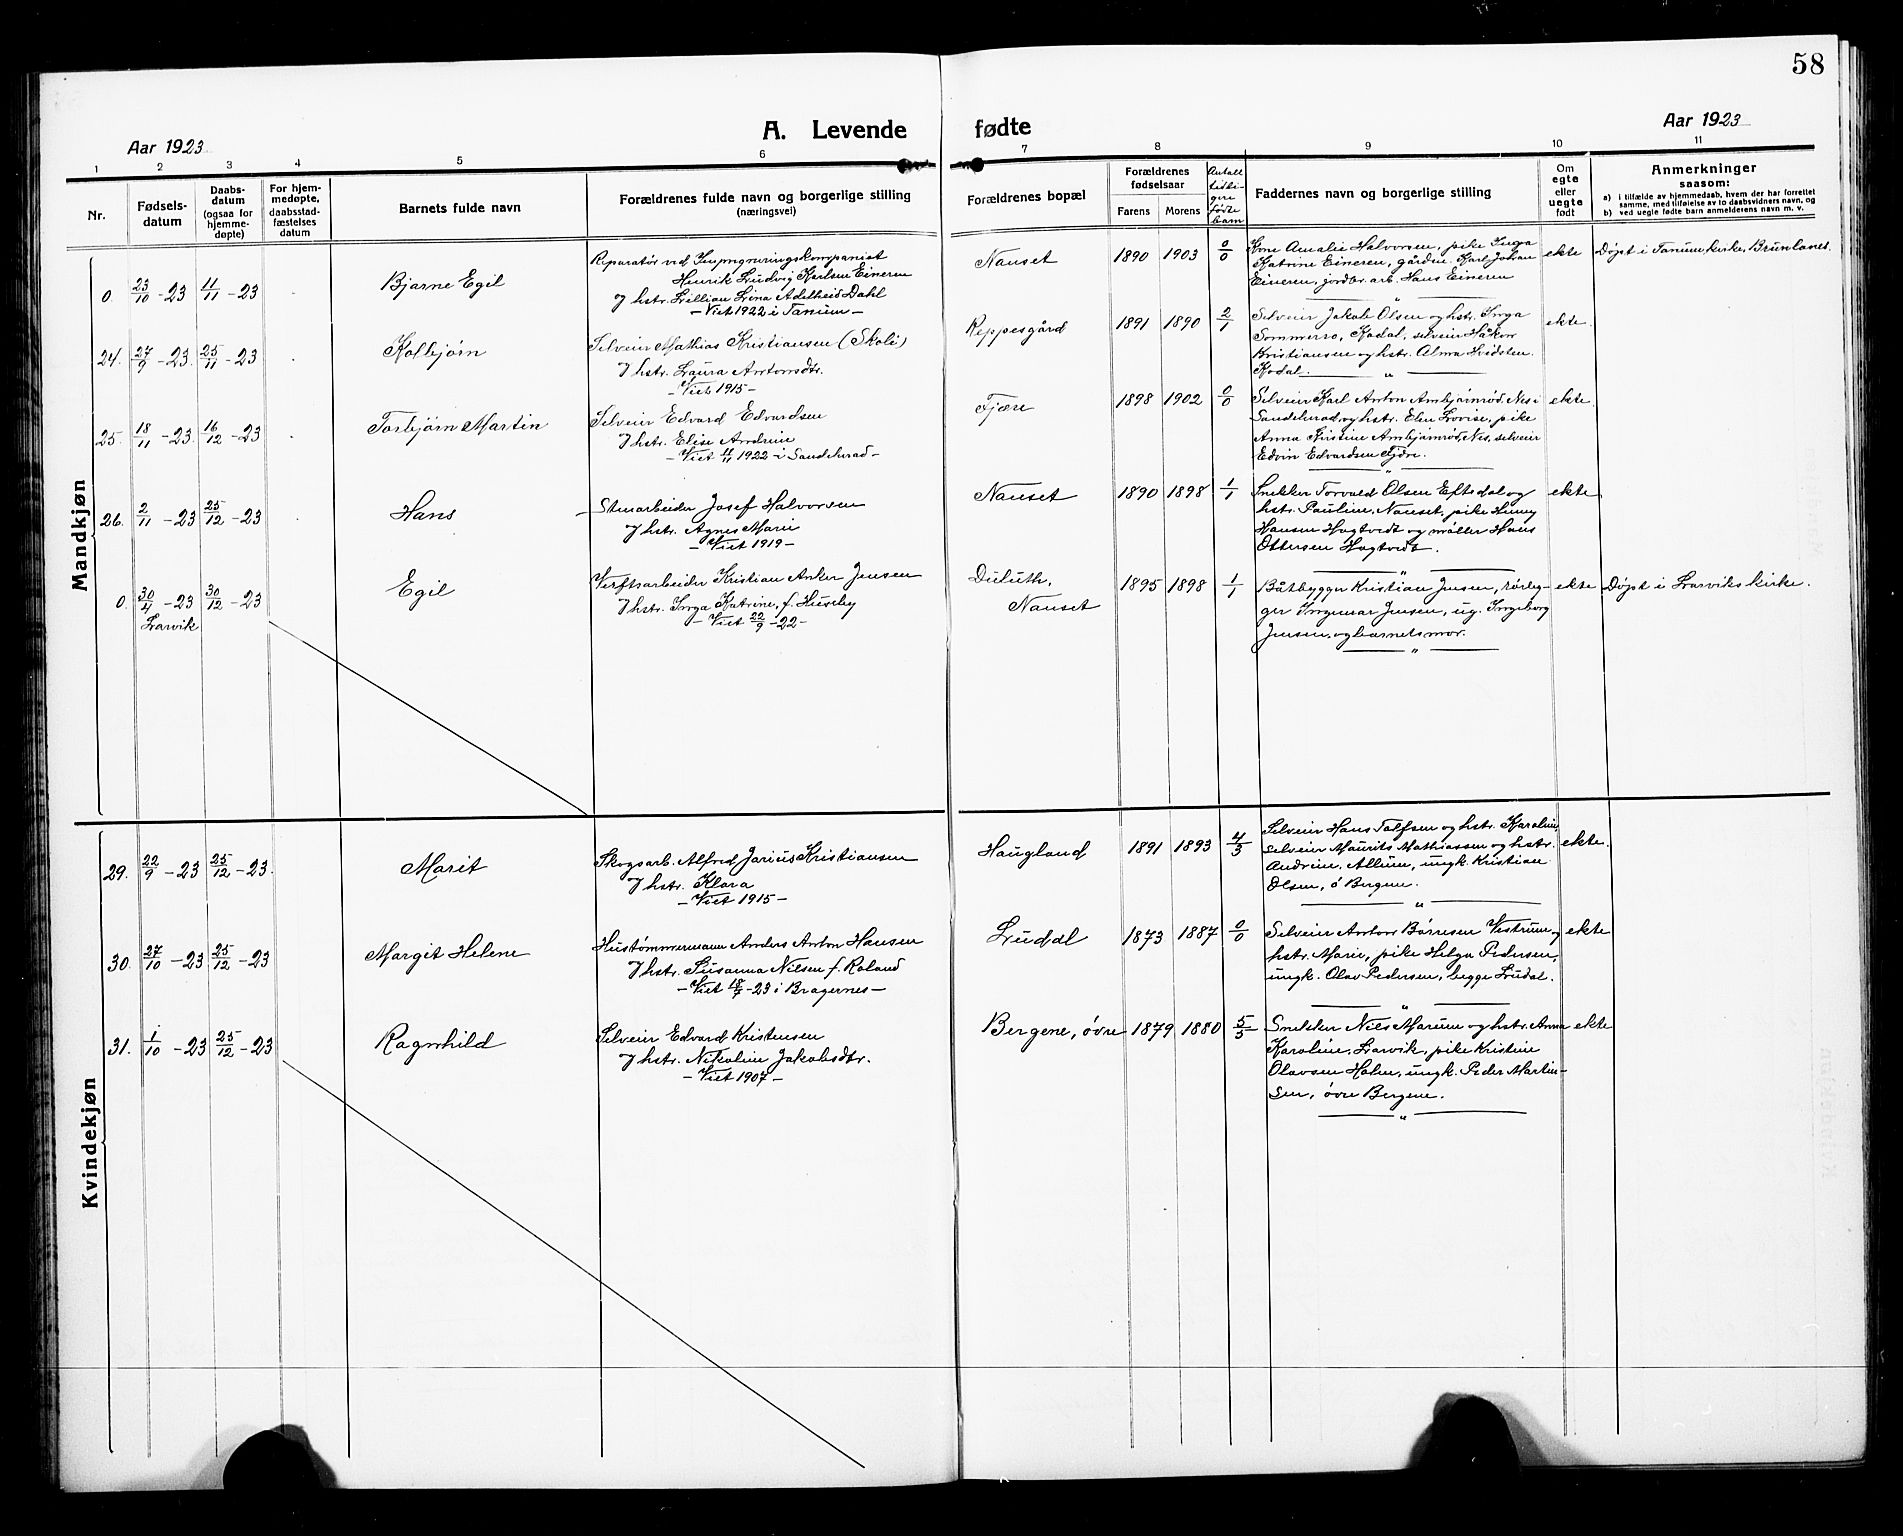 58
A. Levende fødte
Aar 1923
Aar 1923
1 2 3 4 5 6 7 8 9 10 11
Nr.
Fødsels-
datum
Daabs-
datum
(ogsaa for
hjemme-
døpte)
For hjem-
medøpte,
daabsstad-
fæstelses
datum
Barnets fulde navn
Forældrenes fulde navn og borgerlige stilling
(næringsvei)
Forældrenes bopæl
Forældrenes
fødselsaar
Farens Morens
Antall
tidli-
gere
fødte
barn
Faddernes navn og borgerlige stilling
Om
egte
eller
uegte
født
Anmerkninger
saasom:
a) i tilfælde av hjemmedaab, hvem der har forrettet
samme, med tilføielse av to daabsvidners navn, og
b) ved uegte fødte barn anmelderens navn m. v.
Mandkjøn
0. 23/10 - 23 11/11 - 23
Bjarne Egil
Reparatør ved Impregneringskompaniet
Henrik Ludvig Karlsen Eineren
og hstr. Lillian Lina Adelheid Dahl
- Viet 1922 i Tanum -
Nauset 1890 1903 0/0
Kone Amalie Halvorsen, pike Inga
Katrine Eineren, gårdm. Karl Johan
Eineren, jordbr. arb. Hans Eineren
ekte
Døpt i Tanum kirke, Brunlanes.
24. 27/9 - 23 25/11 - 23
Kolbjørn
Selveier Mathias Kristiansen (Skoli)
og hstr. Laura Antonsdtr.
- Viet 1915 -
Reppesgård 1891 1890 2/1
Selveier Jakob Olsen og hstr. Inga
Sommerro, Kodal, selveier Håkon
Kristiansen og hstr. Alma Hvidsten
Kodal.
ekte.
25. 18/11 - 23 16/12 - 23
Torbjørn Martin
Selveier Edvard Edvardsen
og hstr. Elise Andrine
- Viet 4/11 1922 i Sandeherad -
Fjære 1898 1902 0/0
Selveier Karl Anton Ambjørnrød, Nes i
Sandeherad, og hstr. Elen Lovise, pike
Anna Kirstine Ambjørnrød, Nes, selveier
Edvin Edvardsen Fjære.
ekte.
26. 2/11 - 23 25/12 - 23
Hans
Stenarbeider Josef Halvorsen
og hstr. Agnes Marie
- Viet 1919 -
Nauset 1890 1898 1/1
Snekker Torvald Olsen Eftedal og
hstr. Pauline, Nauset, pike Hinny
Hansen Hogtvedt og møller Hans
Ottersen Hogtvedt.
ekte
0. 30/4 - 23 30/12 - 23
Larvik
Egil
Verftsarbeider Kristian Anker Jensen
og hstr. Inga Katrine, f. Huseby
- Viet 22/9 - 22 -
Duluth,
Nauset
1895 1898 1/1
Båtbygger Kristian Jensen, rørleg-
ger Ingemar Jensen, ug. Ingeborg
Jensen, og barnets mor.
ekte
Døpt i Larviks kirke.
Kvindekjøn
29. 22/9 - 23 25/12 - 23.
Marit
Skogsarb. Alfred Jarius Kristiansen
og hstr. Klara
- Viet 1915 -
Haugland 1891 1893 4/3
Selveier Hans Tolfsen og hstr. Karoline,
selveier Maurits Mathiassen og hstr.
Andrine, Allum, ungk. Kristian
Olsen, ö Bergene.
ekte.
30. 27/10 - 23 25/12 - 23
Margit Helene
Hustømmermann Anders Anton Hansen
og hstr. Susanna Nilsen f. Roland
- Viet 15/7 - 23 i Bragernes -
Luddl 1873 1887 0/0
Selveier Anton Børresen Vestrum og
hstr. Marie, pike Helga Pedersen,
ungk. Olav Pedersen, begge Ludal.
ekte
31. 1/10 - 23 25/12 - 23
Ragnhild
Selveier Edvard Kristensen
og hstr. Nikoline Jakobsdtr.
- Viet 1907 -
Bergene, øvre 1879 1880 5/5
Snekker Niels Marum og hstr. Anna
Karoline, Larvik, pike Kristine
Olavsen Holm, ungk. Peder Martin-
sen, øvre Bergene.
ekte